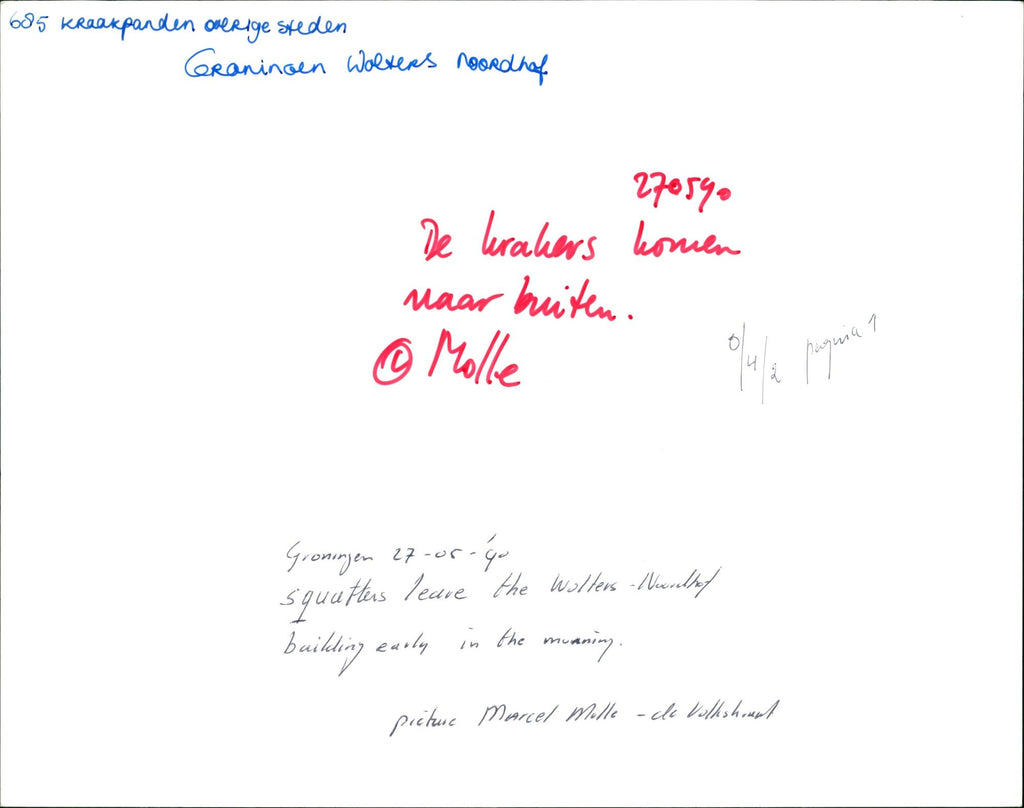 685 kraakpanden overige steden
Groningen Wolters Noordhof
270590
De krakers komen
naar buiten.
© Molle
0/4/2 pagina 1
Groningen 27-05-'90
squatters leave the Wolters-Noordhof
building early in the morning.
picture Marcel Molle - de Volkskrant